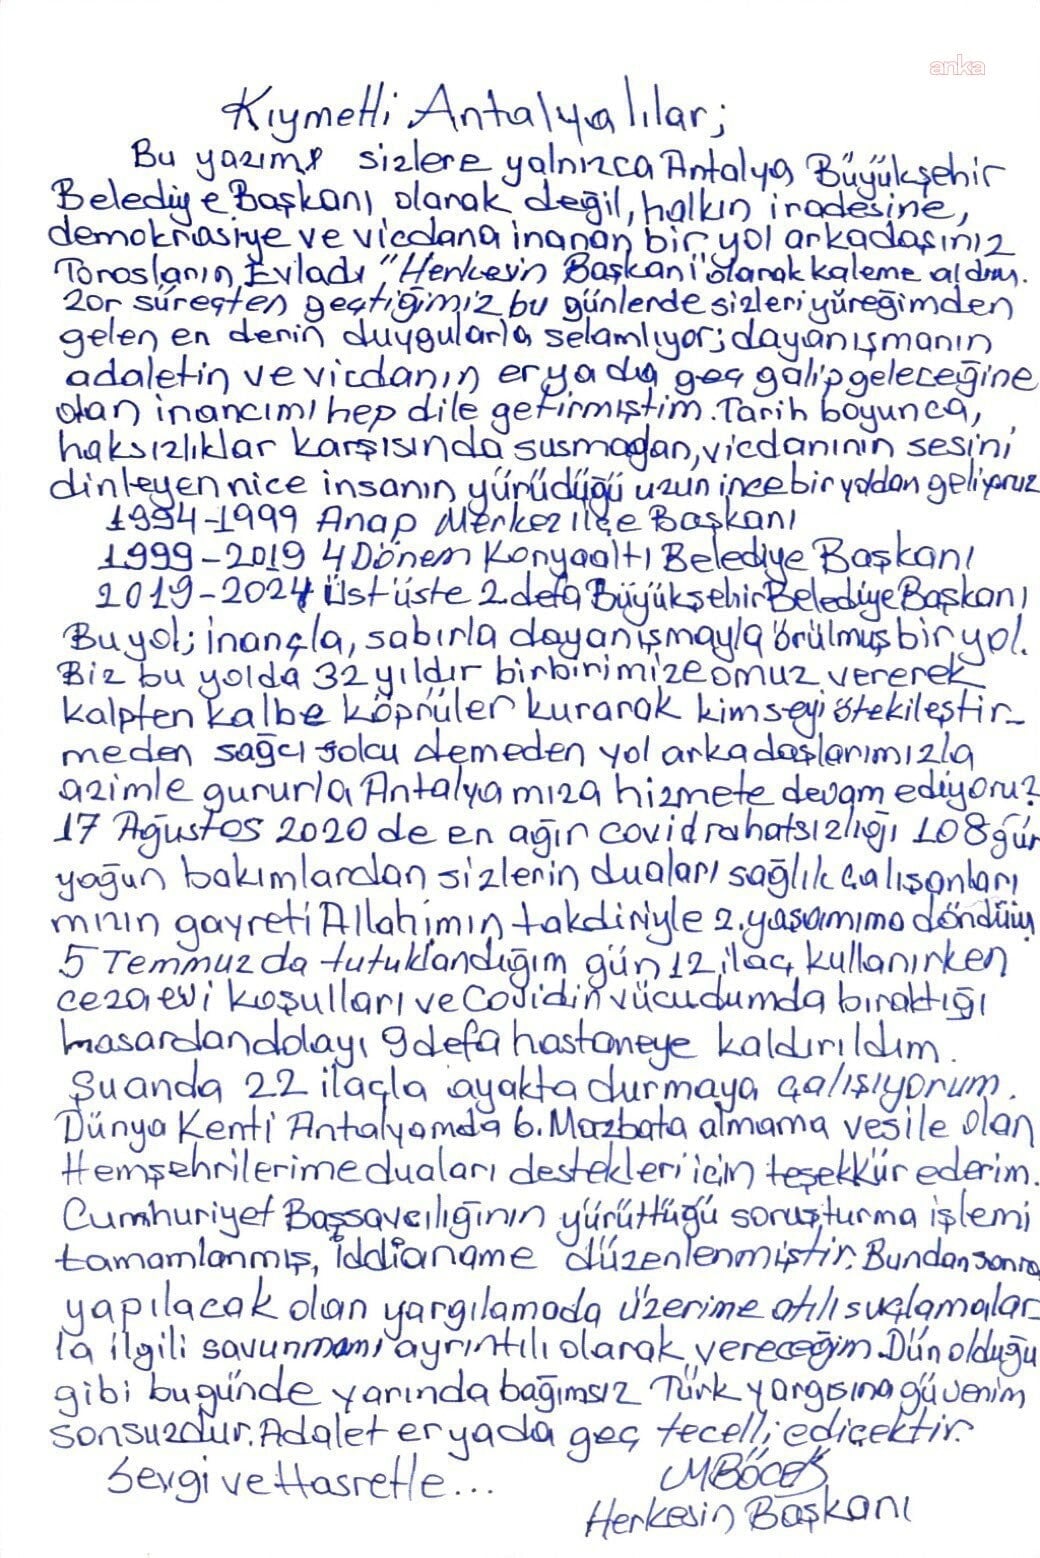 anka
Kıymetli Antalyalılar;
Bu yazımı sizlere yalnızca Antalya Büyükşehir
Belediye Başkanı olarak değil, halkın iradesine,
demokrasiye ve vicdana inanan bir yol arkadaşınız
Torosların Evladı "Herkesin Başkanı" olarak kaleme aldım.
Zor süreçten geçtiğimiz bu günlerde sizleri yüreğimden
gelen en derin duygularla selamlıyor; dayanışmanın
adaletin ve vicdanın er ya da geç galip geleceğine
olan inancımı hep dile getirmiştim. Tarih boyunca,
haksızlıklar karşısında susmadan, vicdanının sesini
dinleyen nice insanın yürüdüğü uzun ince bir yoldan geliyoruz
1994-1999 Anap Merkez ilçe Başkanı
1999-2019 4 Dönem Konyaaltı Belediye Başkanı
2019-2024 Üst üste 2. defa Büyükşehir Belediye Başkanı
Bu yol; inançla, sabırla dayanışmayla örülmüş bir yol.
Biz bu yolda 32 yıldır birbirimize omuz vererek
kalpten kalbe köprüler kurarak kimseyi ötekileştir-
meden sağcı solcu demeden yol arkadaşlarımızla
azimle gururla Antalyamıza hizmete devam ediyoruz
17 Ağustos 2020 de en ağır covid rahatsızlığı 108 gün
yoğun bakımlardan sizlerin duaları sağlık çalışanları
mızın gayreti Allahımın takdiriyle 2. yaşamıma döndüm
5 Temmuz da tutuklandığım gün 12 ilaç kullanırken
cezaevi koşulları ve Covidin vücudumda bıraktığı
hasardan dolayı 9 defa hastaneye kaldırıldım.
Şuanda 22 ilaçla ayakta durmaya çalışıyorum.
Dünya Kenti Antalyamda 6. Mazbata almama vesile olan
Hemşehrilerime duaları destekleri için teşekkür ederim.
Cumhuriyet Başsavcılığının yürüttüğü soruşturma işlemi
tamamlanmış, İddianame düzenlenmiştir. Bundan sonra
yapılacak olan yargılamada üzerime atılı suçlamalar-
la ilgili savunmamı ayrıntılı olarak vereceğim. Dün olduğu
gibi bugünde yarında bağımsız Türk yargısına güvenim
sonsuzdur. Adalet er ya da geç tecelli edicektir.
Sevgi ve Hasretle...
MBÖCEK
Herkesin Başkanı